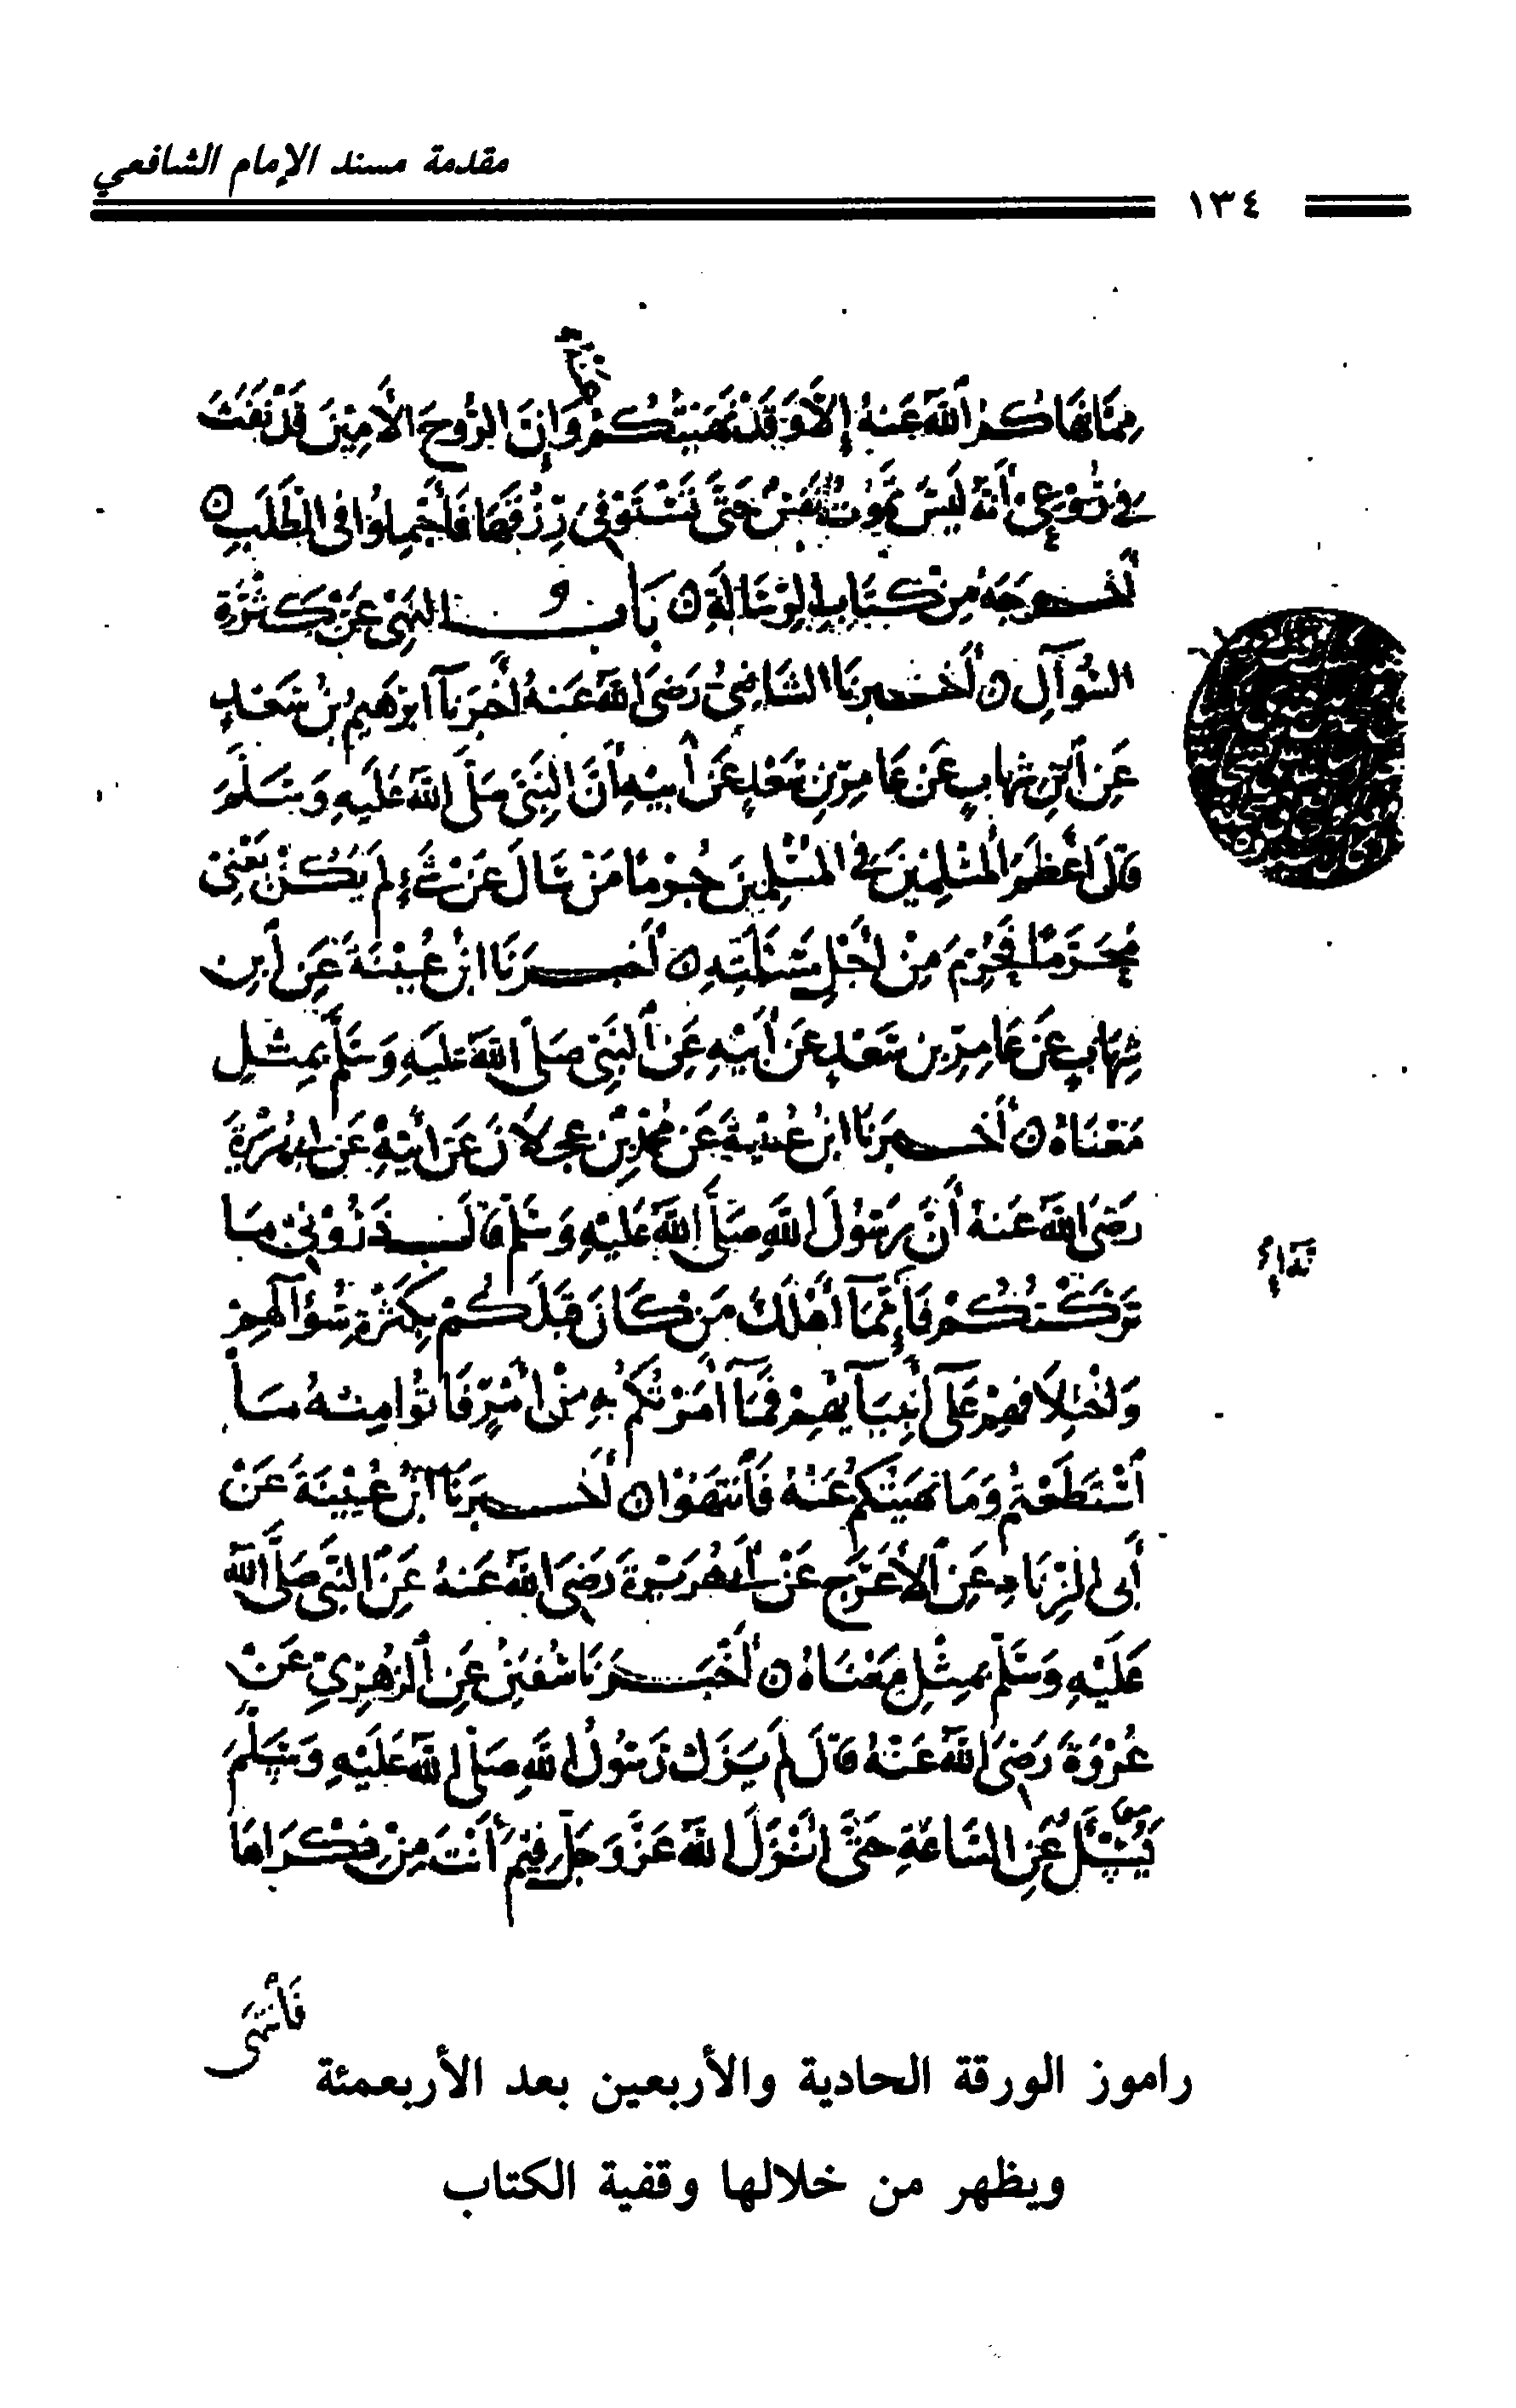 مقدمة مسند الإمام الشافعي
١٣٤
مِمَّا نَهَاكُمُ اللَّهُ عَنْهُ إِلَّا وَقَدْ نَهَيْتُكُمْ وَإِنَّ الرُّوحَ الْأَمِينَ قَدْ نَفَثَ
فِي رُوعِي أَنَّهُ لَيْسَ تَمُوتُ نَفْسٌ حَتَّى تَسْتَوْفِيَ رِزْقَهَا فَأَجْمِلُوا فِي الطَّلَبِ ۝
أَخْرَجَهُ مِنْ كِتَابِ الرِّسَالَةِ ۝ بَابُ النَّهْيِ عَنْ كَثْرَةِ
السُّؤَالِ ۝ أَخْبَرَنَا الشَّافِعِيُّ رَضِيَ اللَّهُ عَنْهُ أَخْبَرَنَا إِبْرَهِيمُ بْنُ سَعْدٍ
عَنِ ابْنِ شِهَابٍ عَنْ عَامِرِ بْنِ سَعْدٍ عَنْ أَبِيهِ أَنَّ النَّبِيَّ صَلَّى اللَّهُ عَلَيْهِ وَسَلَّمَ
قَالَ أَعْظَمُ الْمُسْلِمِينَ فِي الْمُسْلِمِينَ جُرْمًا مَنْ سَأَلَ عَنْ شَيْءٍ لَمْ يَكُنْ يَعْنِي
مُحَرَّمًا فَحُرِّمَ مِنْ أَجْلِ مَسْأَلَتِهِ ۝ أَخْبَرَنَا ابْنُ عُيَيْنَةَ عَنِ ابْنِ
شِهَابٍ عَنْ عَامِرِ بْنِ سَعْدٍ عَنْ أَبِيهِ عَنِ النَّبِيِّ صَلَّى اللَّهُ عَلَيْهِ وَسَلَّمَ بِمِثْلِ
مَعْنَاهُ ۝ أَخْبَرَنَا ابْنُ عُيَيْنَةَ عَنْ مُحَمَّدِ بْنِ عَجْلَانَ عَنْ أَبِيهِ عَنْ أَبِي هُرَيْرَةَ
رَضِيَ اللَّهُ عَنْهُ أَنَّ رَسُولَ اللَّهِ صَلَّى اللَّهُ عَلَيْهِ وَسَلَّمَ قَالَ ذَرُونِي مَا
تَرَكْتُكُمْ فَإِنَّمَا أَهْلَكَ مَنْ كَانَ قَبْلَكُمْ بِكَثْرَةِ سُؤَالِهِمْ
وَاخْتِلَافِهِمْ عَلَى أَنْبِيَآيِهِمْ فَمَا أَمَرْتُكُمْ بِهِ مِنْ أَمْرٍ فَأْتُوا مِنْهُ مَا
اسْتَطَعْتُمْ وَمَا نَهَيْتُكُمْ عَنْهُ فَانْتَهُوا ۝ أَخْبَرَنَا ابْنُ عُيَيْنَةَ عَنْ
أَبِي الزِّنَادِ عَنِ الْأَعْرَجِ عَنْ أَبِي هُرَيْرَةَ رَضِيَ اللَّهُ عَنْهُ عَنِ النَّبِيِّ صَلَّى اللَّهُ
عَلَيْهِ وَسَلَّمَ بِمِثْلِ مَعْنَاهُ ۝ أَخْبَرَنَا سُفْيَنُ عَنِ الزُّهْرِيِّ عَنْ
عُرْوَةَ رَضِيَ اللَّهُ عَنْهُ قَالَ لَمْ يَزَلْ رَسُولُ اللَّهِ صَلَّى اللَّهُ عَلَيْهِ وَسَلَّمَ
يُسْئَلُ عَنِ السَّاعَةِ حَتَّى أَنْزَلَ اللَّهُ عَزَّ وَجَلَّ فِيمَ أَنْتَ مِنْ ذِكْرَاهَا
فَانْتَهَى
راموز الورقة الحادية والأربعين بعد الأربعمئة
ويظهر من خلالها وقفية الكتاب